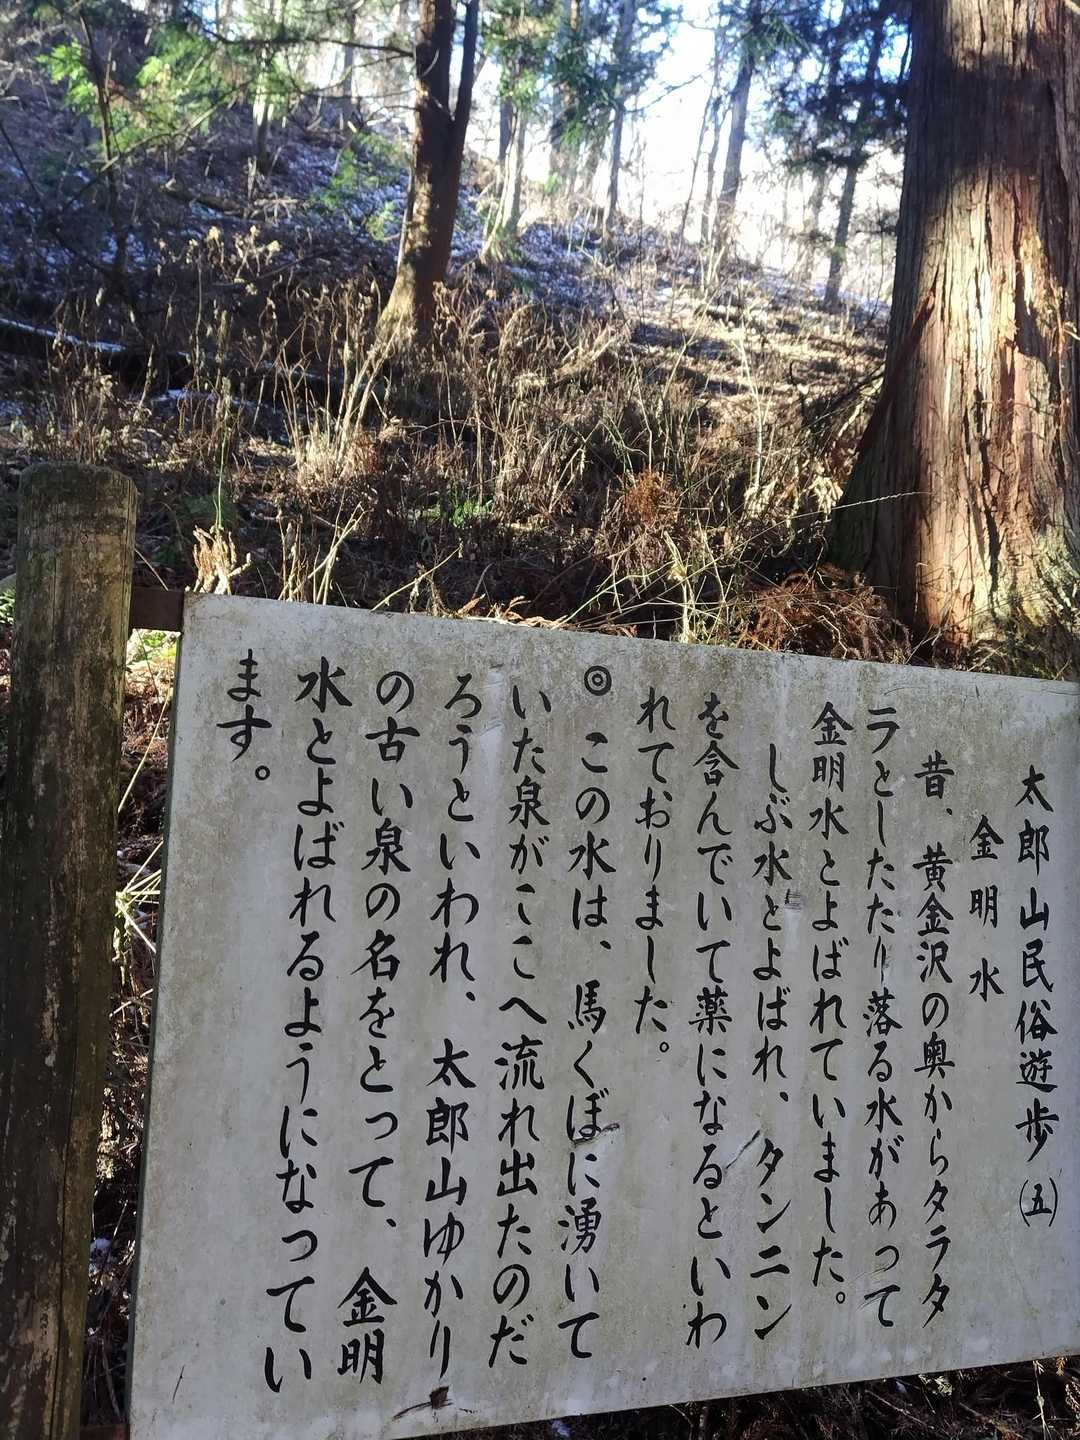 太郎山民俗遊歩(五)
金明水
昔、黄金沢の奥からタラタ
ラとしたたり落る水があって
金明水とよばれていました。
しぶ水とよばれ、タンニン
を含んでいて薬になるといわ
れておりました。
◎この水は、馬くぼに湧いて
いた泉がここへ流れ出たのだ
ろうといわれ、太郎山ゆかり
の古い泉の名をとって、金明
水とよばれるようになってい
ます。